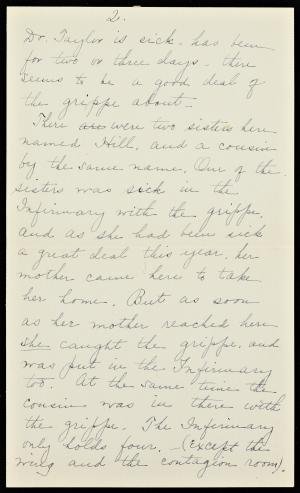 2.
Dr. Taylor is sick - has been
for two or three days - there
seems to be a good deal of
the grippe about -
There are were two sisters here
named Hill, and a cousin
by the same name. One of the
sisters was sick in the
Infirmary with the grippe,
and as she had been sick
a great deal this year, her
mother came here to take
her home. But as soon
as her mother reached here
she caught the grippe, and
was put in the Infirmary
too. At the same time the
cousin was in there with
the grippe. The Infirmary
only holds four. - (except the
wing and the contagion room).